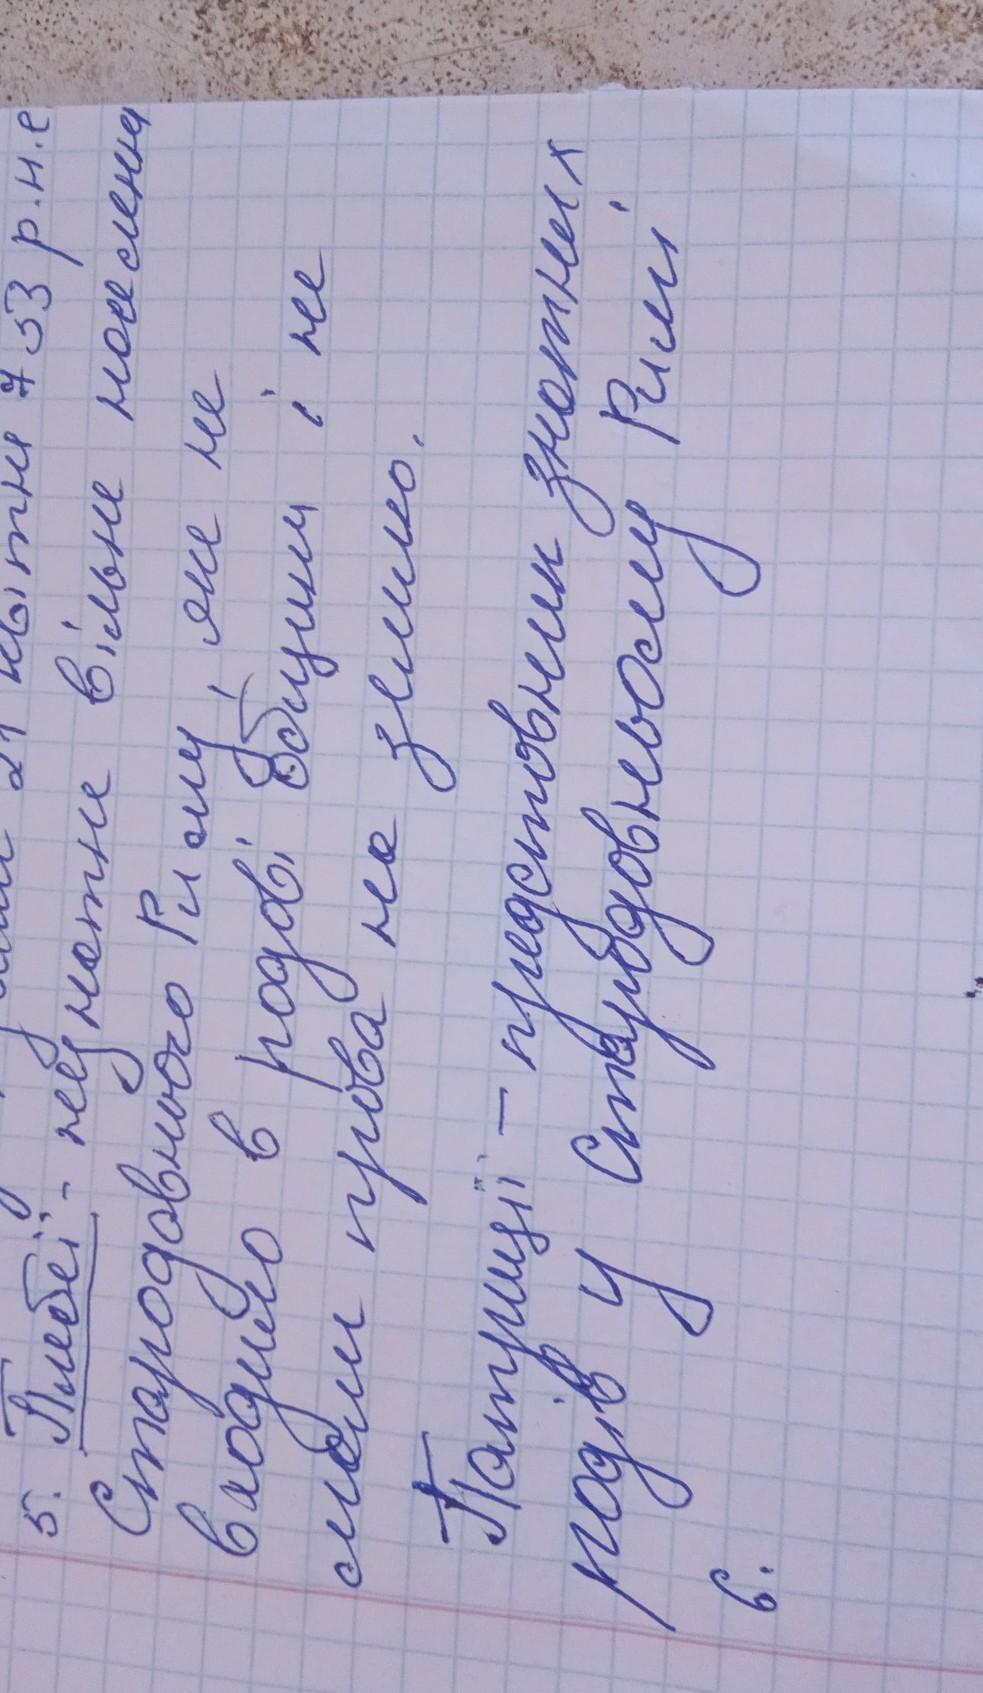 21 квітня 753 р.н.е
5. Плебеї - незнатне вільне населення
Стародавнього Риму, яке не
входило в родові общини і не
мали права на землю.
Патриції – представники знатних
родів у Стародавньому Римі
6.